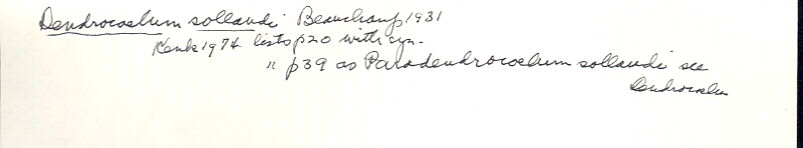 Dendrocoelum sollaudi Beauchamp 1931
Kenk 1974 lists p20 with syn.
" p39 as Paradendrocoelum sollaudi see
Dendrocoelum